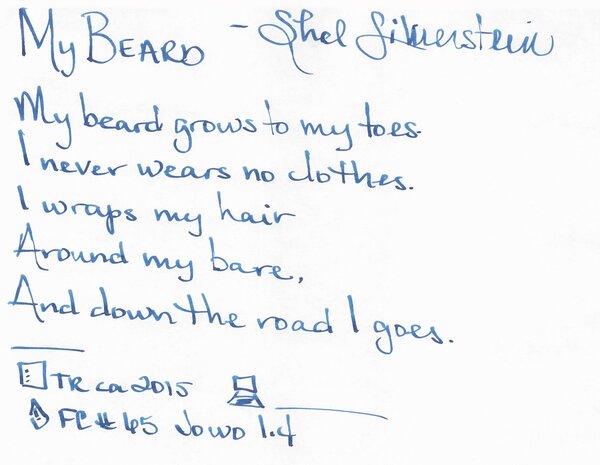 My BEARD - Shel Silverstein
My beard grows to my toes.
I never wears no clothes.
I wraps my hair
Around my bare,
And down the road I goes.
TR ca 2015
FC # 45 Jowo 1.4